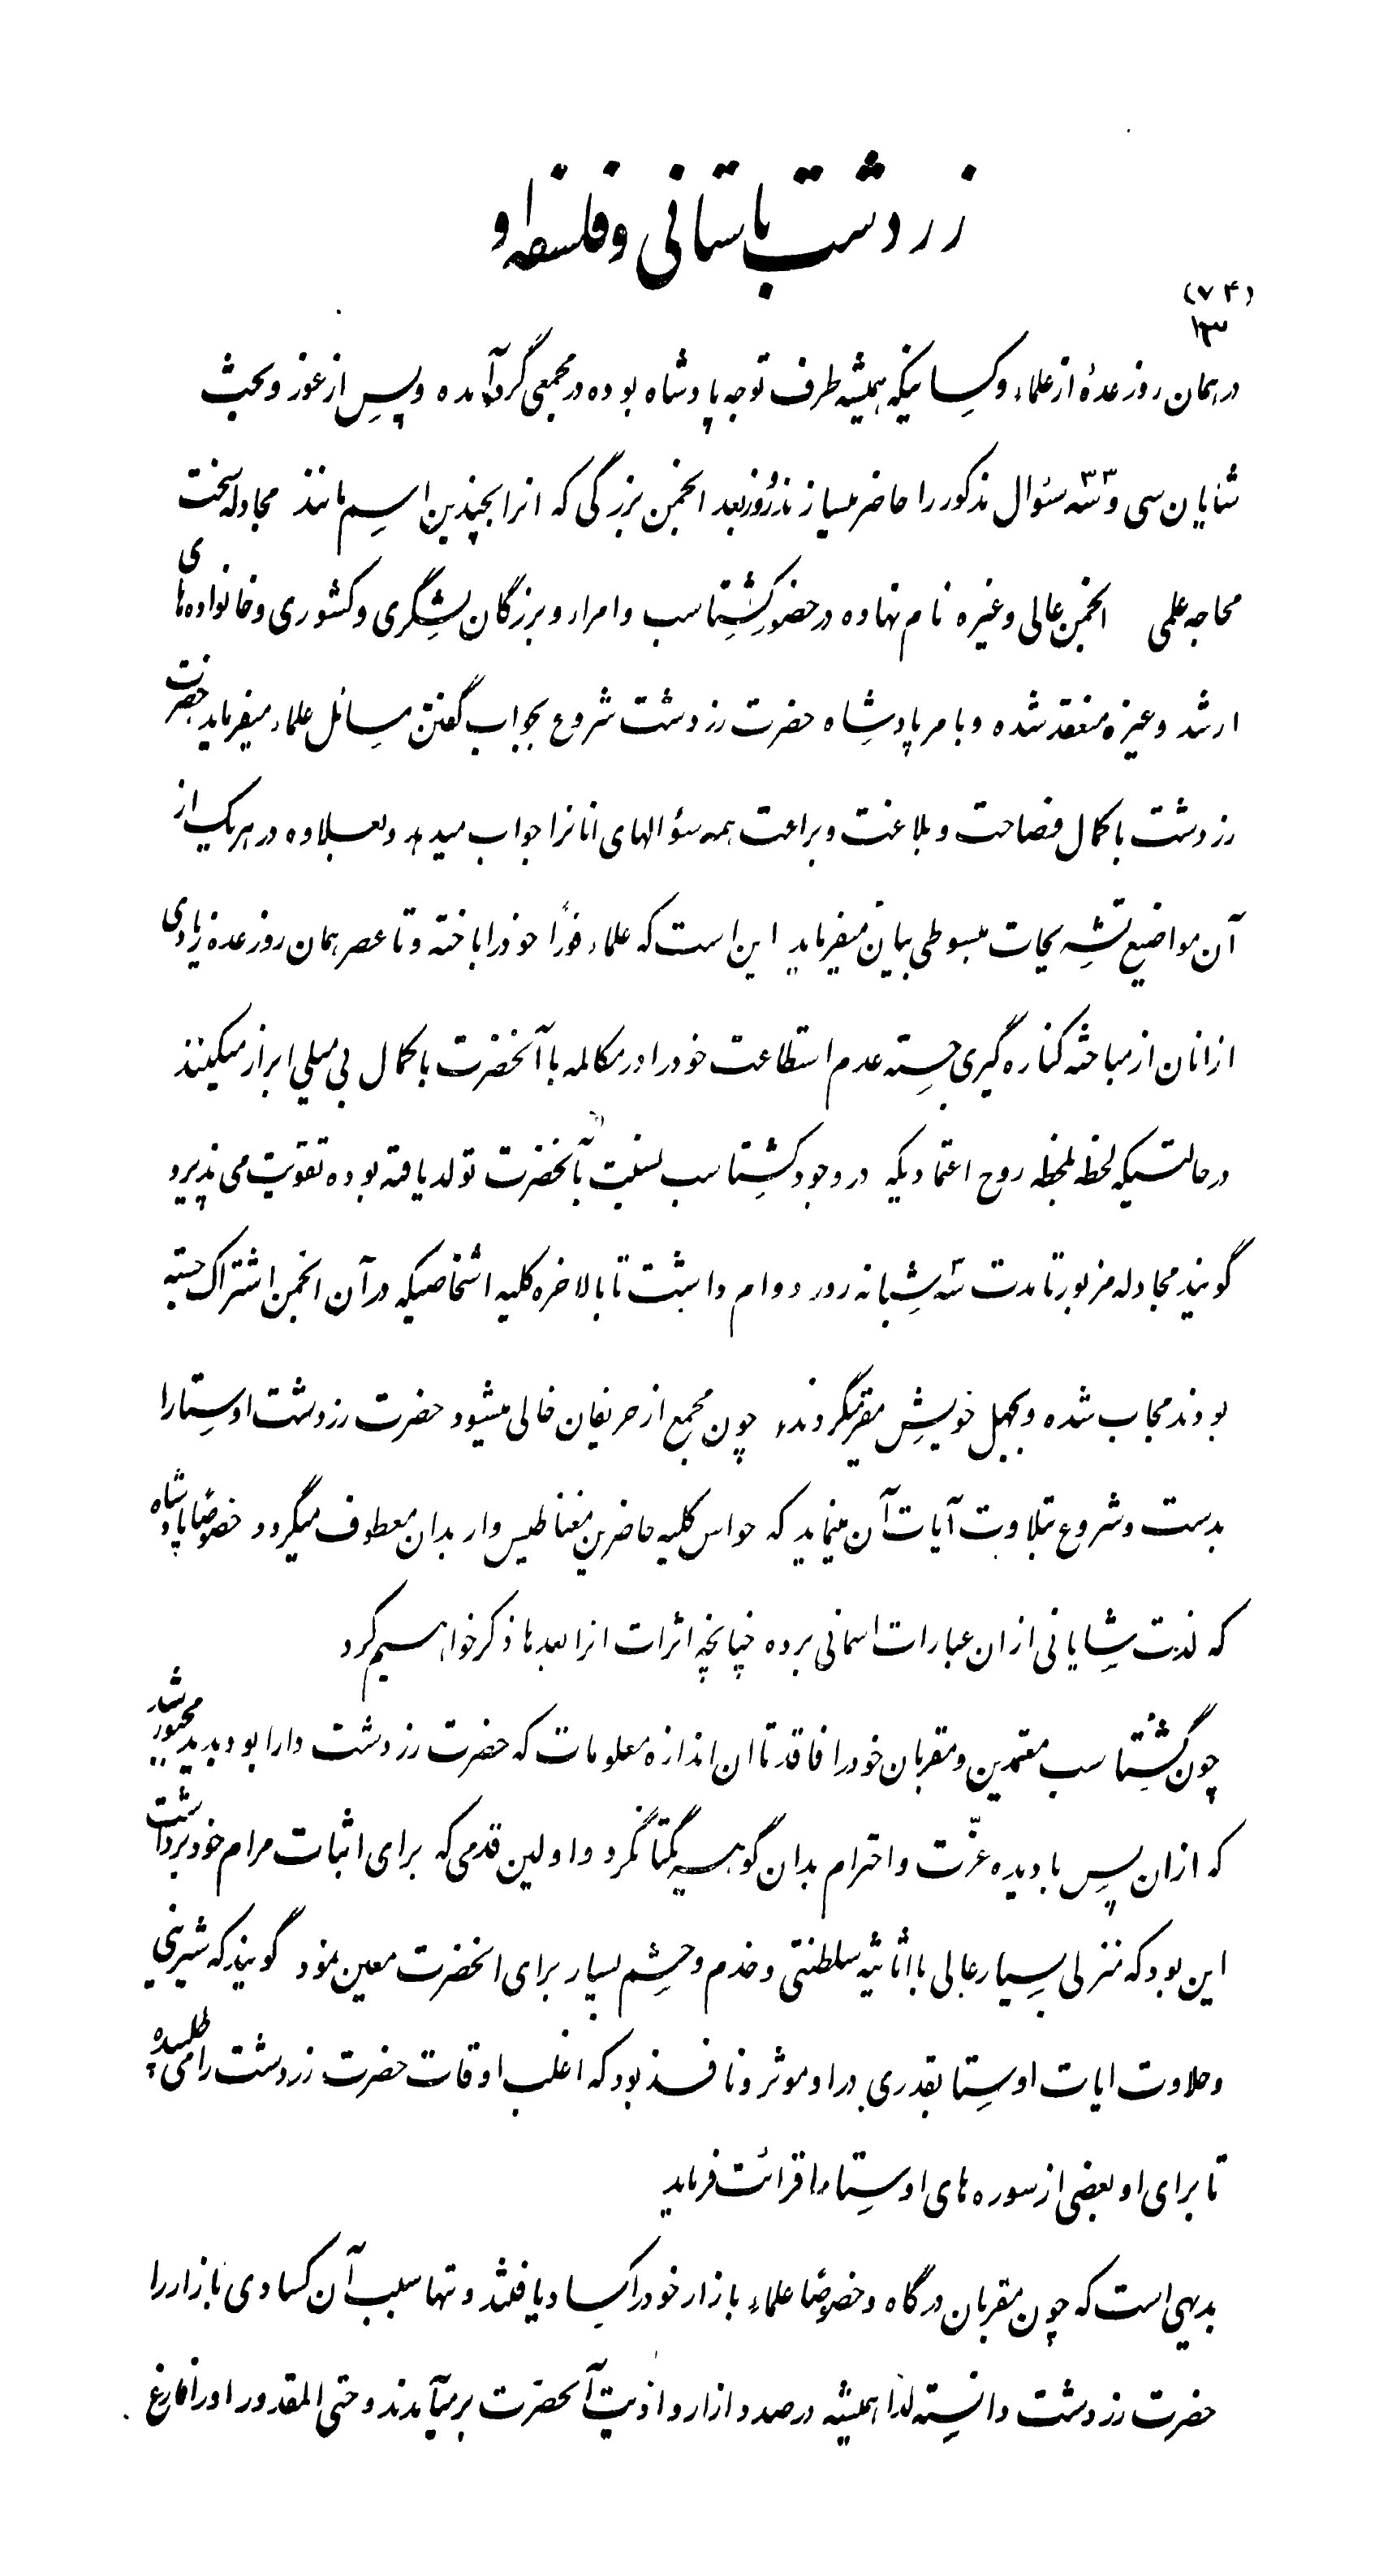 زردشت باستانی و فلسفه او
(۷۴)
در همان روز عدهٔ از علماء و کسانیکه همیشه طرف توجه پادشاه بوده در مجمعی گرد آمده و پس از غور و بحث
شایان سی و سه سئوال مذکور را حاضر میسازند روز بعد انجمن بزرگی که انرا بچندین اسم مانند مجادله سخت
محاجه علمی انجمن عالی و غیره نام نهاده در حضور گشتاسب و امراء و بزرگان لشگری و کشوری و خانواده‌های
ارشد و غیره منعقد شده و بامر پادشاه حضرت زردشت شروع بجواب گفتن مسائل علماء میفرماید حضرت
زردشت با کمال فصاحت و بلاغت و براعت همه سؤالهای انانرا جواب میدهد و بعلاوه در هریک از
آن مواضیع تشریحات مبسوطی بیان میفرماید این است که علماء فوراً خود را باخته و تا عصر همان روز عده زیادی
از انان از مباحثه کناره گیری جسته عدم استطاعت خود را در مکالمه با آنحضرت با کمال بی میلی ابراز میکنند
در حالتیکه لحظه بلحظه روح اعتمادیکه در وجود گشتاسب نسبت بآنحضرت تولد یافته بوده تقویت می پذیرد
گویند مجادله مزبور تا مدت سه شبانه روز دوام داشت تا بالاخره کلیه اشخاصیکه در آن انجمن اشتراک جسته
بودند مجاب شده و بجهل خویش مقر میگردند، چون مجمع از حریفان خالی میشود حضرت زردشت اوستا را
بدست و شروع بتلاوت آیات آن مینماید که حواس کلیه حاضرین مغناطیس وار بدان معطوف میگردد خصوصاً پادشاه
که لذت شایانی از ان عبارات اسمانی برده چنانچه اثرات انرا بعدها ذکر خواهیم کرد
چون گشتاسب معتمدین و مقربان خود را فاقد تا ان اندازه معلومات که حضرت زردشت دارا بود بدید مجبور شد
که از ان پس با دیده عزّت و احترام بدان گوهر یکتا نگرد و اولین قدمی که برای اثبات مرام خود برداشت
این بود که منزلی بسیار عالی با اثاثیه سلطنتی و خدم و حشم بسیار برای انحضرت معین نمود گویند که شیرینی
و حلاوت ایات اوستا بقدری در او موثر و نافذ بود که اغلب اوقات حضرت زردشت را می طلبیده
تا برای او بعضی از سوره های اوستا را قرائت فرماید
بدیهی است که چون مقربان درگاه و خصوصاً علماء بازار خود را کساد یافتند و تنها سبب آن کسادی بازار را
حضرت زردشت دانسته لذا همیشه در صدد ازار و اذیت آنحضرت برمیآمدند و حتی المقدور او را فارغ